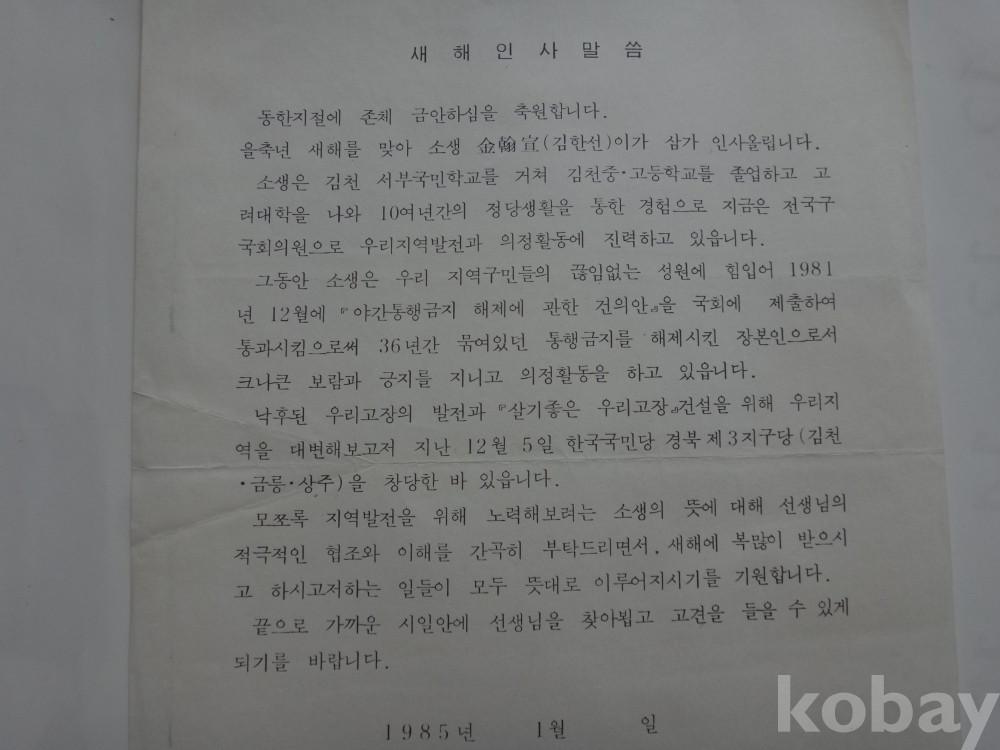 새 해 인 사 말 씀
동한지절에 존체 금안하심을 축원합니다.
을축년 새해를 맞아 소생 金翰宣(김한선)이가 삼가 인사올립니다.
소생은 김천 서부국민학교를 거쳐 김천중·고등학교를 졸업하고 고
려대학을 나와 10여년간의 정당생활을 통한 경험으로 지금은 전국구
국회의원으로 우리지역발전과 의정활동에 진력하고 있읍니다.
그동안 소생은 우리 지역구민들의 끊임없는 성원에 힘입어 1981
년 12월에 『야간통행금지 해제에 관한 건의안』을 국회에 제출하여
통과시킴으로써 36년간 묶여있던 통행금지를 해제시킨 장본인으로서
크나큰 보람과 긍지를 지니고 의정활동을 하고 있읍니다.
낙후된 우리고장의 발전과 『살기좋은 우리고장』건설을 위해 우리지
역을 대변해보고저 지난 12월 5일 한국국민당 경북제3지구당(김천
·금릉·상주)을 창당한 바 있읍니다.
모쪼록 지역발전을 위해 노력해보려는 소생의 뜻에 대해 선생님의
적극적인 협조와 이해를 간곡히 부탁드리면서, 새해에 복많이 받으시
고 하시고저하는 일들이 모두 뜻대로 이루어지시기를 기원합니다.
끝으로 가까운 시일안에 선생님을 찾아뵙고 고견을 들을 수 있게
되기를 바랍니다.
1985년 1월 일
kobay